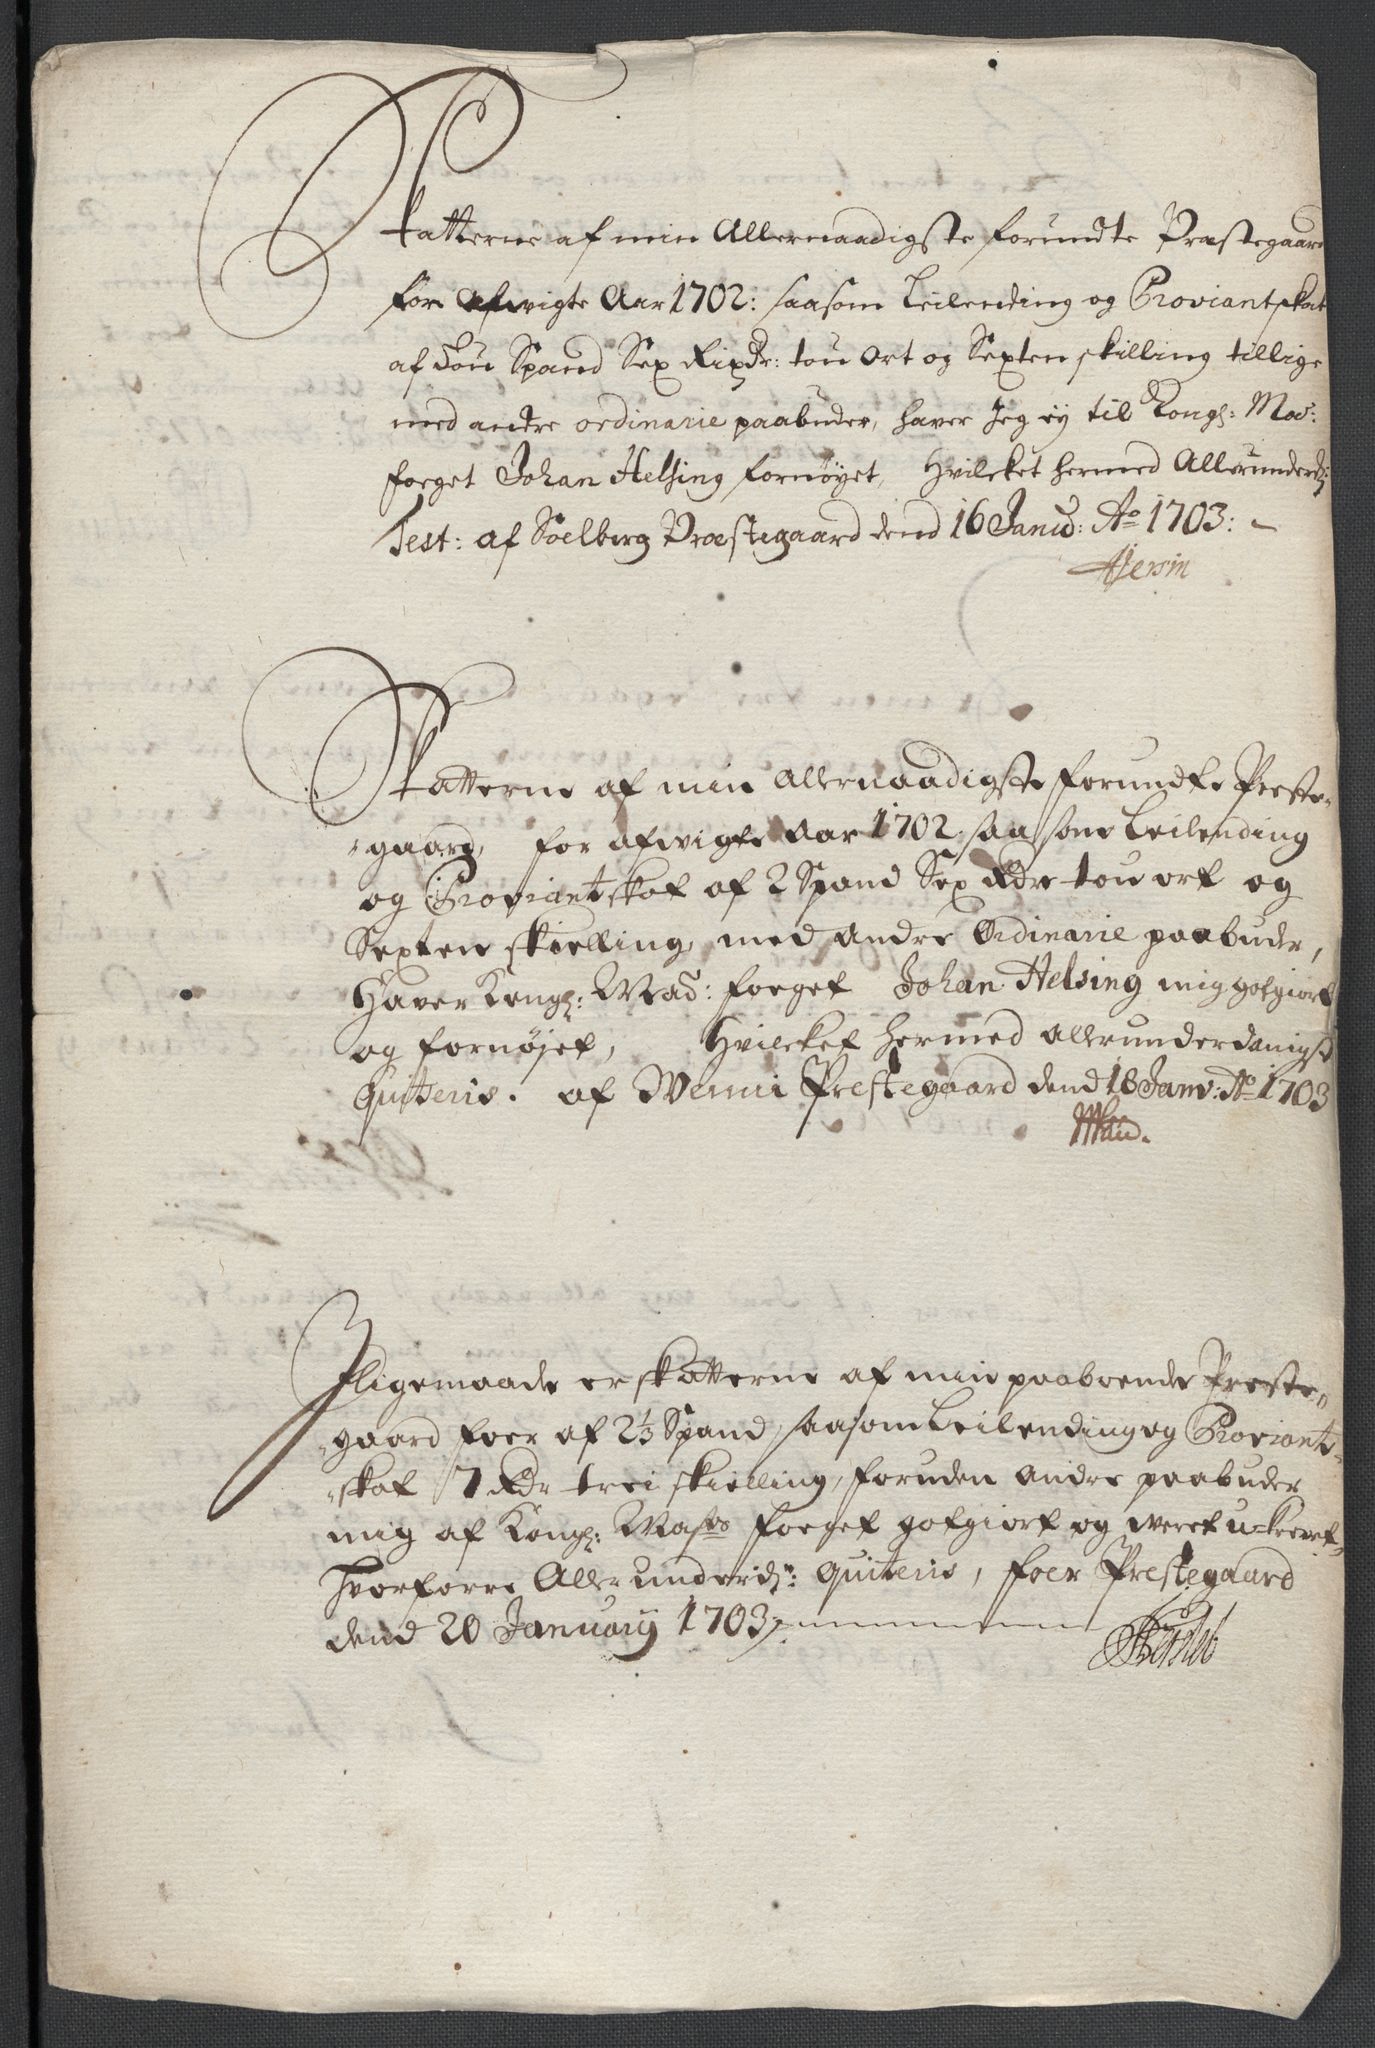 Skatterne af min Allernaadigste forundte Præstegaard
for afwigte Aar 1702: saasom Leilending og Proviantskat
af tou Spand Sex Rixdr: tou ort og Sexten skilling tillige
med andre ordinarie paabuder, haver Jeg ey til Kongl: May:
foeget Johan Helsing fornøyet, Hvilcket hermed Allerunderd:
Test: af Soelberg Præstegaard dend 16 Janu: Ao 1703:
Skatterne af min allernaadigste forundte Preste-
gaard, for afwigte Aar 1702 saasom Leilending
og Proviantskat af 2 Spand Sex Rdr tou ort og
Sexten skielling, med andre Ordinarie paabuder,
Haver Kongl: Mad: foeget Johan Helsing mig gotgiort
og fornøjet, Hvilcket hermed allerunderdanigst
quitteris. af Wenni Prestegaard dend 18 Janv: Ao 1703
Jligemaade er skatterne af min paaboende Preste-
gaard foer af 2 1/3 Spand, saasom Leilending og Proviant-
skat 7 Rdr trei skielling, foruden andre paabuder
mig af Kongl: Maysts foeget gotgiort og weret u-krevet,
hvorforre Allerunderd: quiteris, foer Prestegaard
dend 20 January 1703